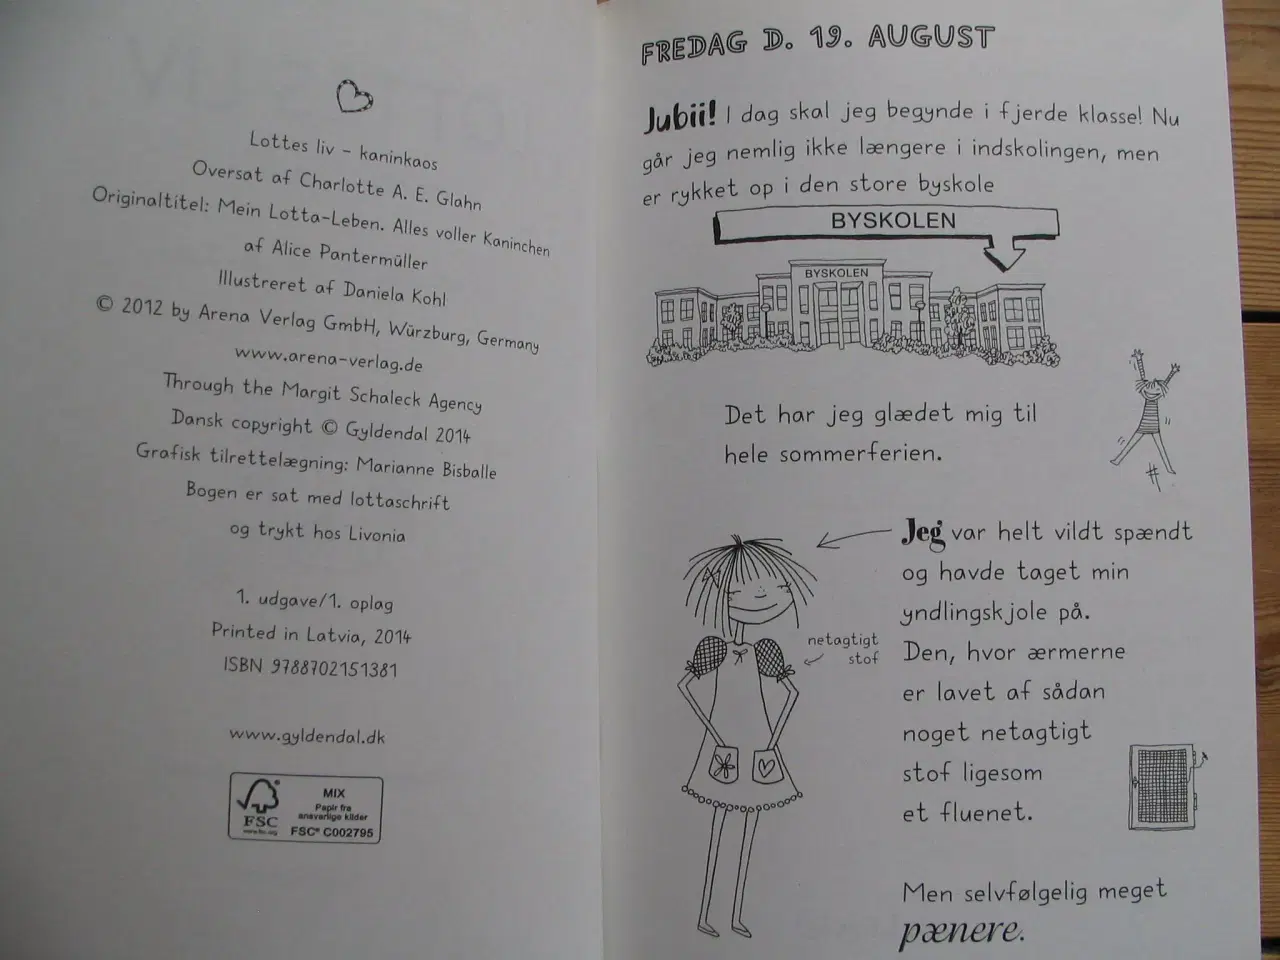 Lottes liv – kaninkaos
Oversat af Charlotte A. E. Glahn
Originaltitel: Mein Lotta-Leben. Alles voller Kaninchen
af Alice Pantermüller
Illustreret af Daniela Kohl
© 2012 by Arena Verlag GmbH, Würzburg, Germany
www.arena-verlag.de
Through the Margit Schaleck Agency
Dansk copyright © Gyldendal 2014
Grafisk tilrettelægning: Marianne Bisballe
Bogen er sat med lottaschrift
og trykt hos Livonia
1. udgave/1. oplag
Printed in Latvia, 2014
ISBN 9788702151381
www.gyldendal.dk
FSC
www.fsc.org
MIX
Papir fra
ansvarlige kilder
FSC® C002795
FREDAG D. 19. AUGUST
Jubii! I dag skal jeg begynde i fjerde klasse! Nu
går jeg nemlig ikke længere i indskolingen, men
er rykket op i den store byskole
BYSKOLEN
BYSKOLEN
Det har jeg glædet mig til
hele sommerferien.
Jeg var helt vildt spændt
og havde taget min
yndlingskjole på.
netagtigt
stof
Den, hvor ærmerne
er lavet af sådan
noget netagtigt
stof ligesom
et fluenet.
Men selvfølgelig meget
pænere.